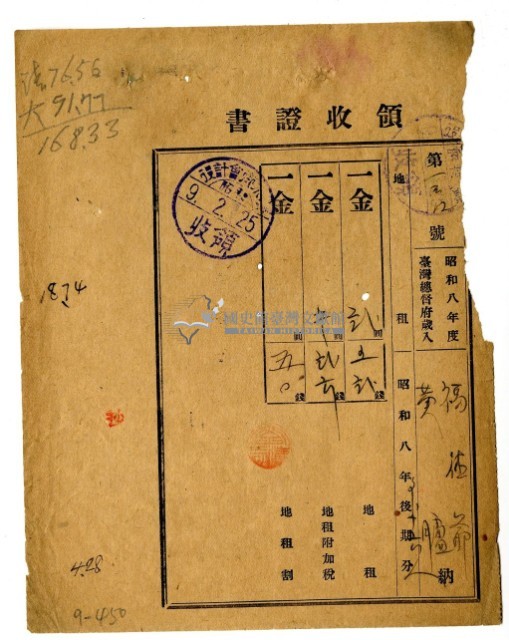 76.56
大91.77
168.33
領收證書
第 號
昭和八年度
臺灣總督府歲入
福德爺
黃 臚
納
地 租
昭和八年後期分
一金 貳圓五貳錢 地租
一金 圓貳六錢 地租附加稅
一金 圓五〇錢 地租割
9.2.25
領收
國史館臺灣文獻館
TAIWAN HISTORICA
18.74
4.28
9-450